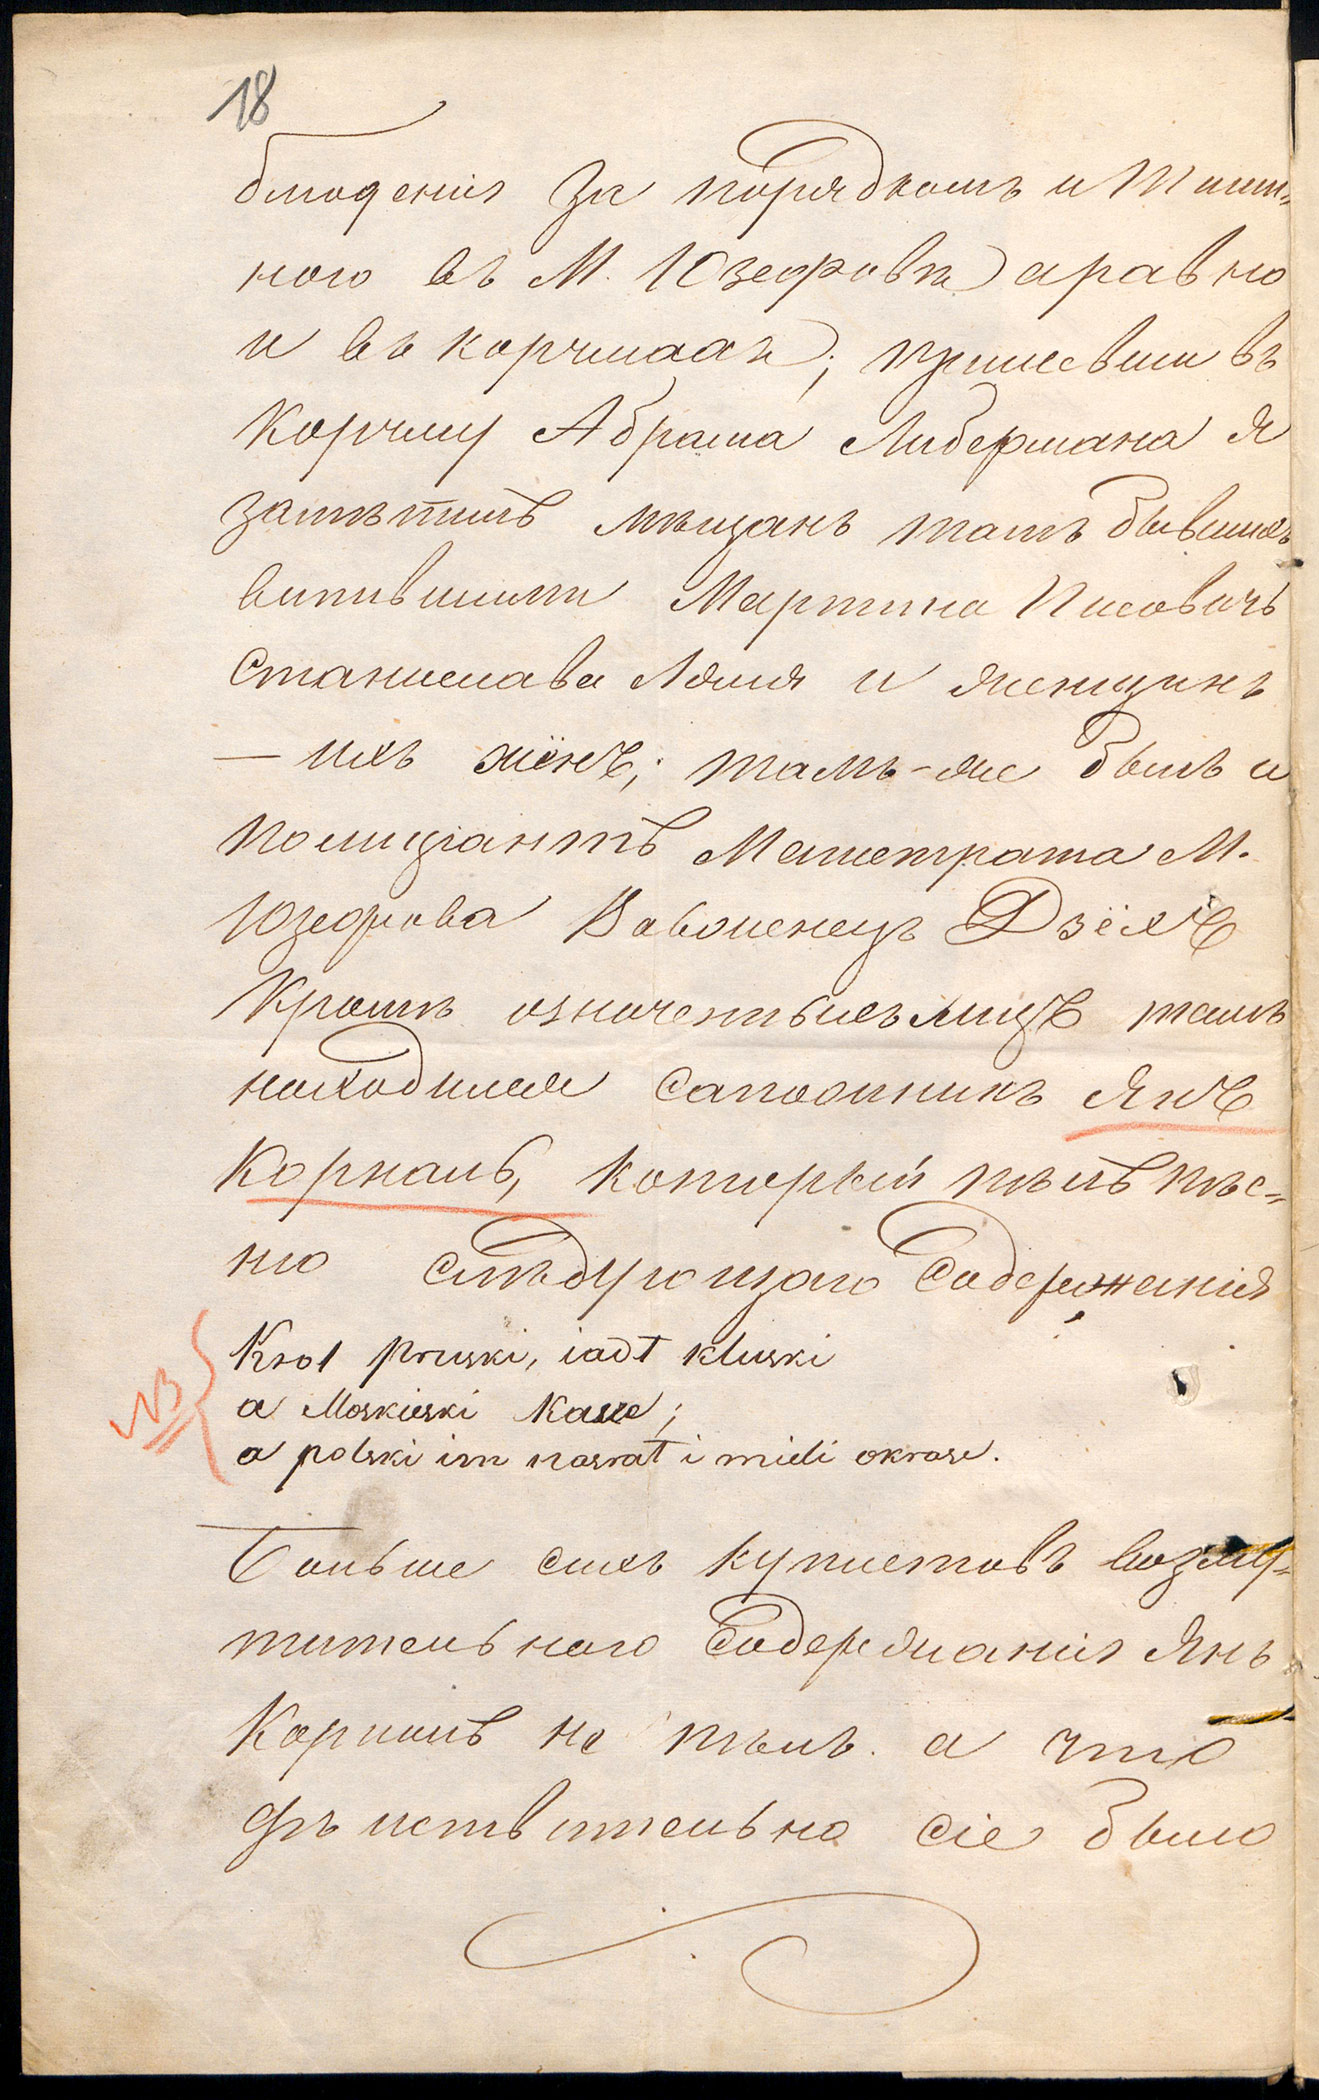 18
блюденія за порядкомъ и тиши-
ною въ М. Юзефовѣ а равно
и въ корчмахъ; пришевши въ
корчму Абрама Либермана я
замѣтилъ мѣщанъ тамъ бывшихъ
випившими Мартина Писовичъ
Станислава Ляшя и женщинъ
— ихъ жёнъ; тамъ-же былъ и
полиціантъ Магистрата М.
Юзефова Вавженецъ Дзёхъ
Кромѣ означенныхъ лицъ тамъ
находился сапожникъ Янъ
Корналь, который пѣлъ пѣс-
ню слѣдующаго содержанія
NB
Krol pruski, iadt kluski
a Moskieski Kasze;
a polski im nasrat i mieli okrase.
Больше сихъ куплетовъ возму-
тительнаго содержанія Янъ
Корналь не пѣлъ. а что
дѣйствительно сіе было